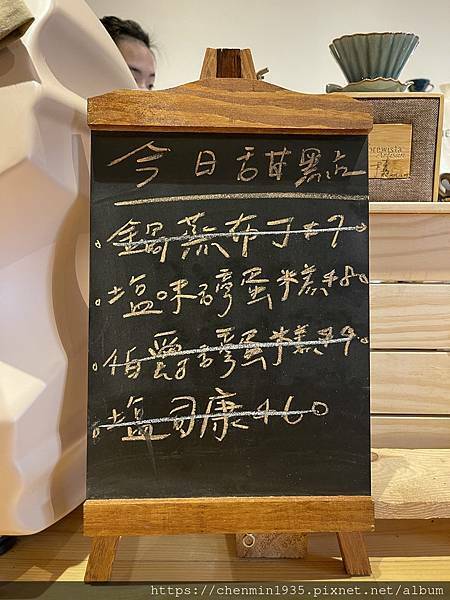 今日甜點
鍋蒸布丁 $70
塩味磅蛋糕 $80
伯爵磅蛋糕 $90
塩司康 $60
brewista
Artisan
https://chenmin1935.pixnet.net/album